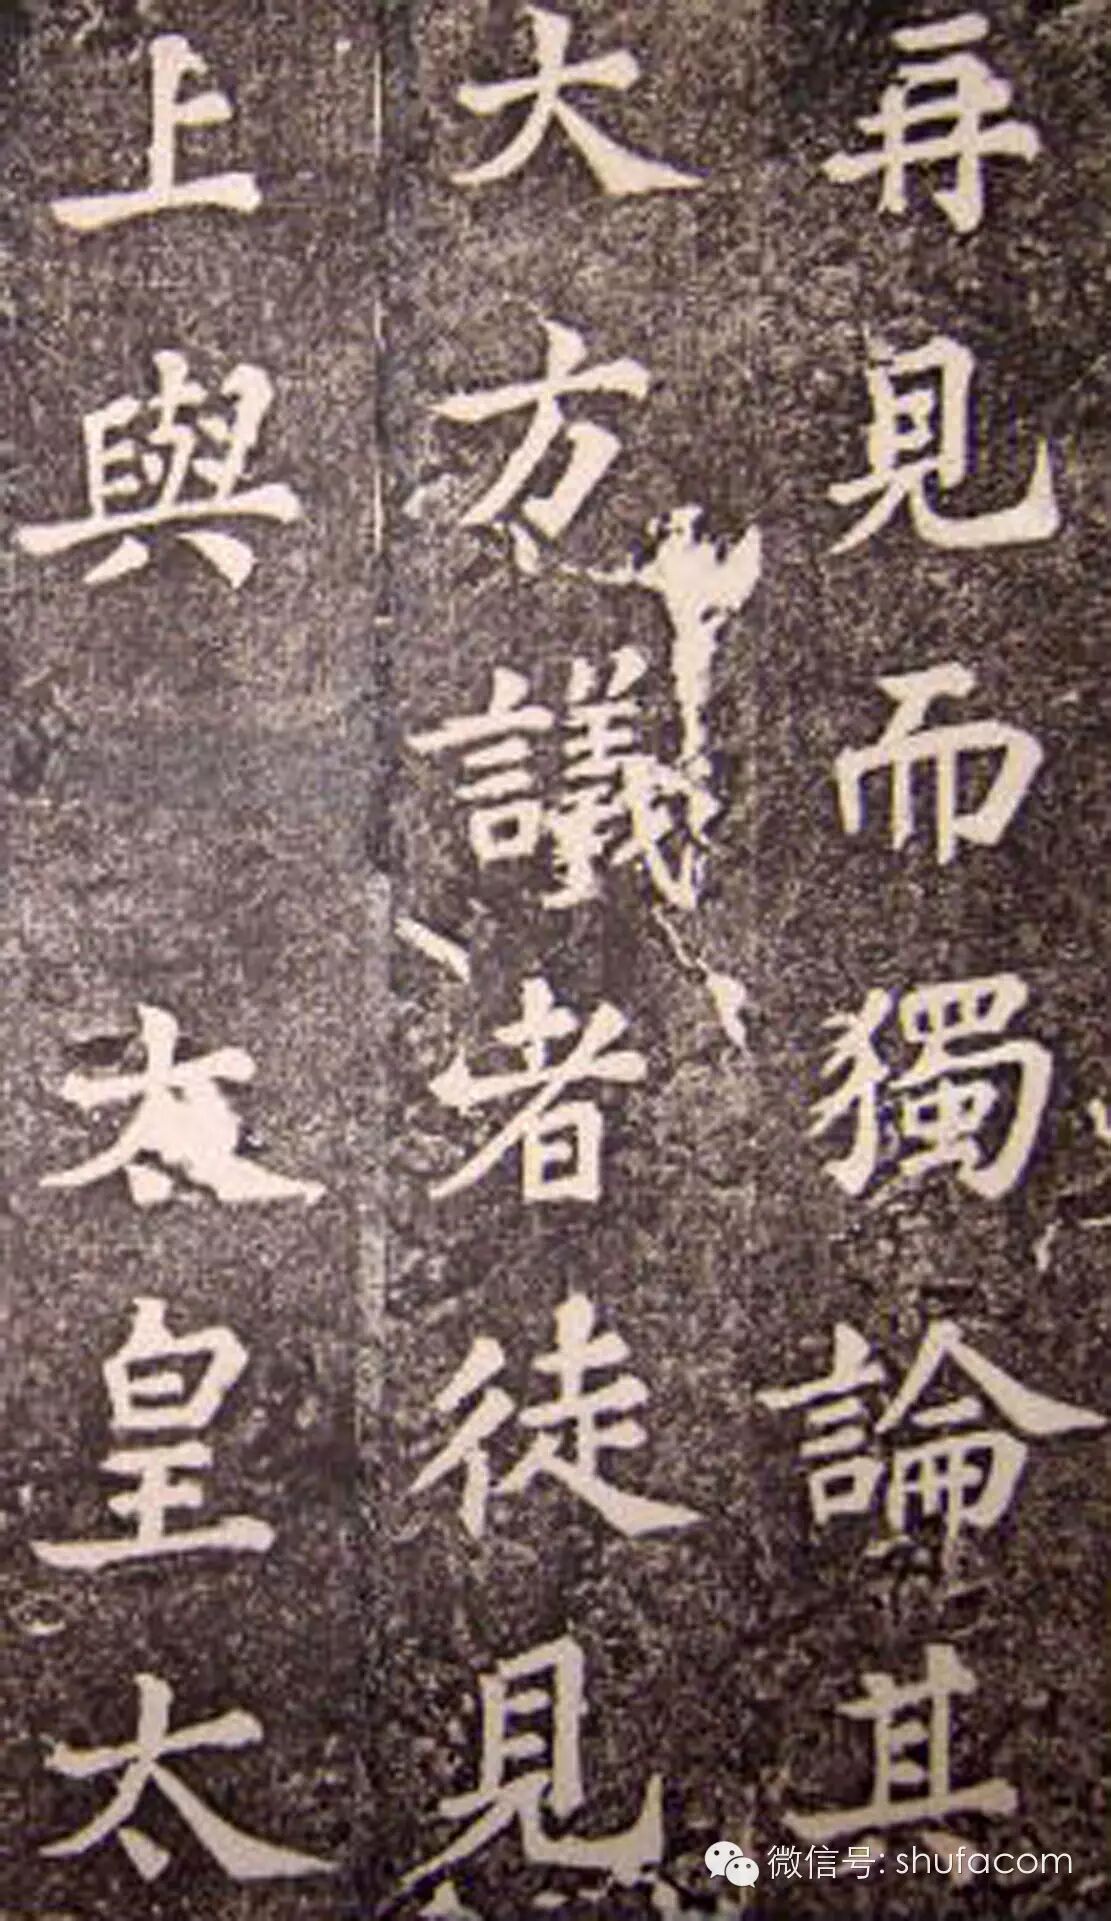 再見而獨論其
大方議者徒見
上與 太皇太
微信号: shufacom